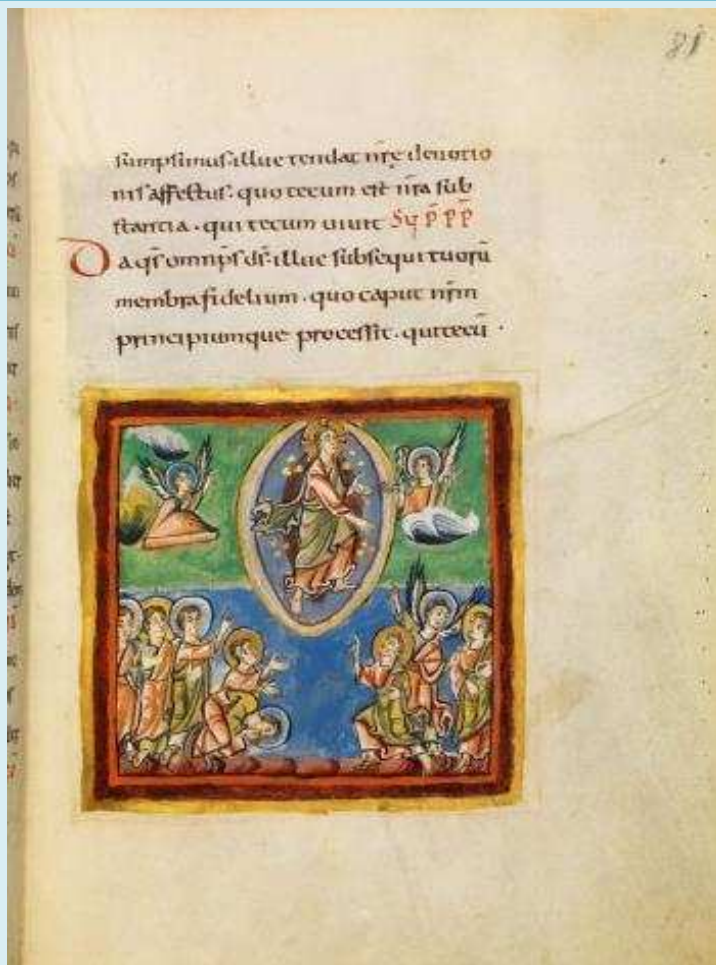 81
sumpsimus. illuc tendat nr̄ę deuotio
nis affectus. quo tecum est nr̄a sub
stantia. qui tecum uiuit Sƿ p̄ p̄ p̄
Da q̄s omnip̄s ds̄. illuc subsequi tuorū
membra fidelium. quo caput nr̄m
principiumque processit. qui tecū.